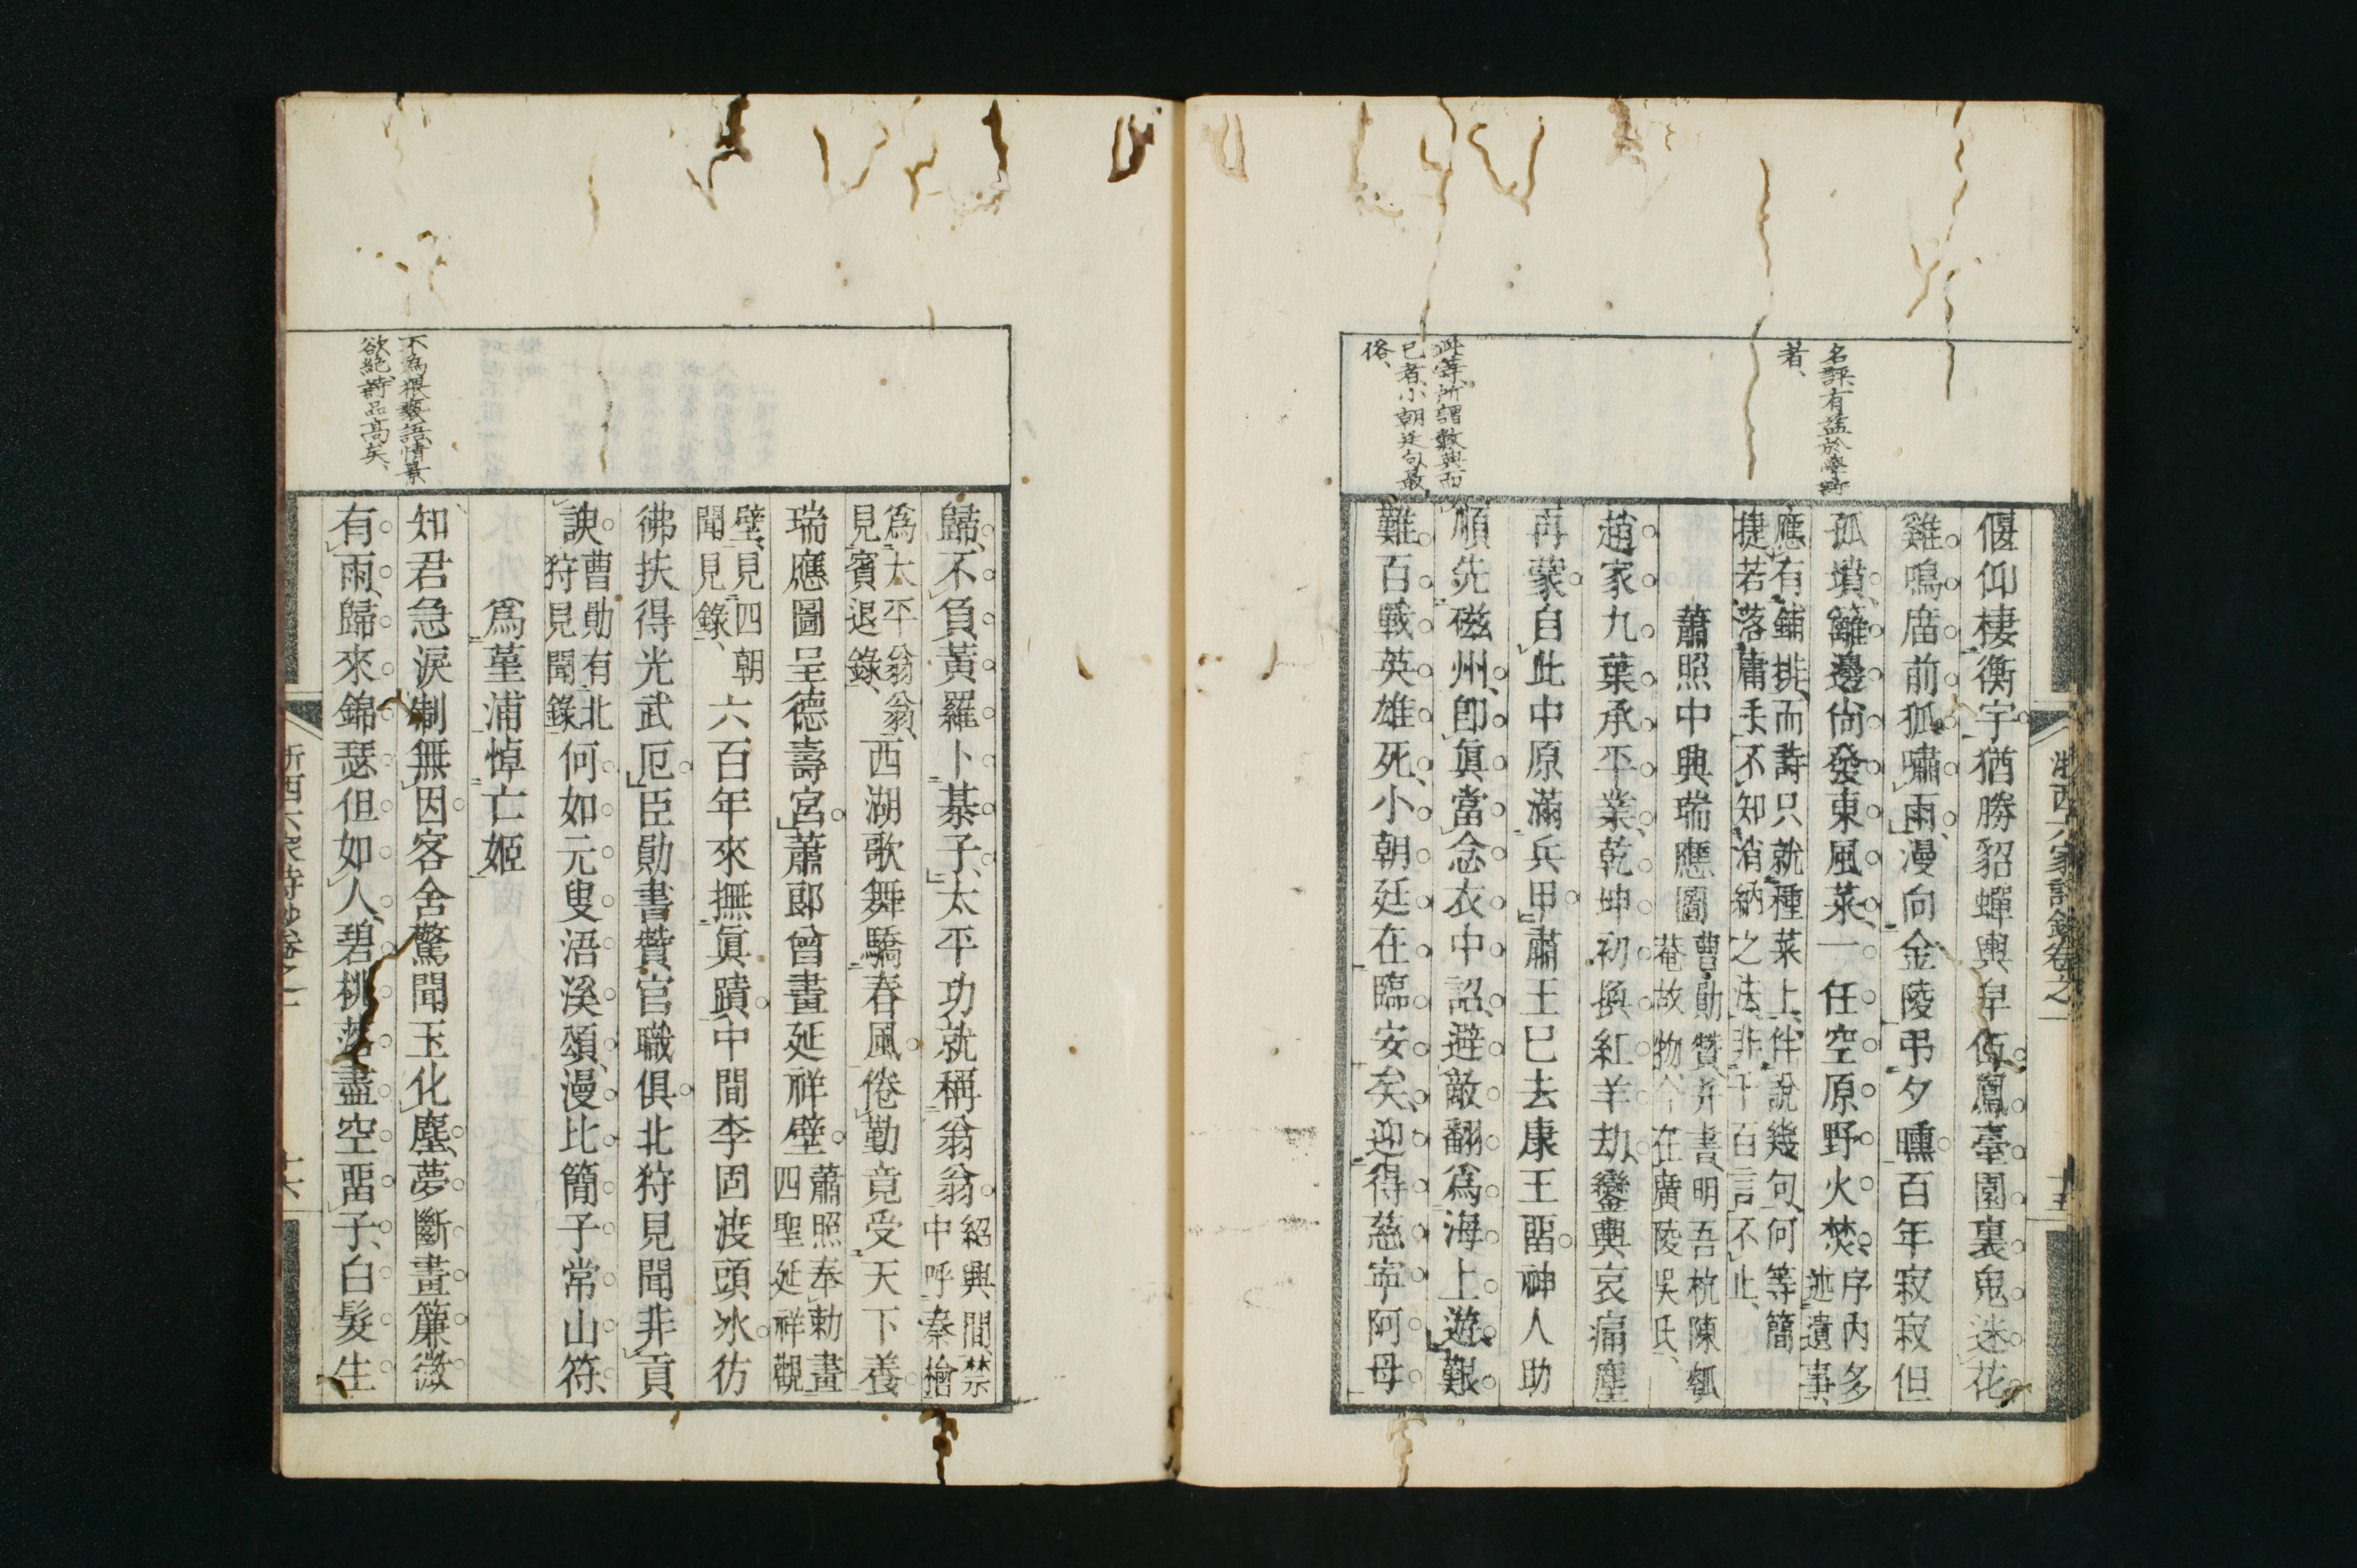 名評有益於學詩
者、
此等所謂數典而
已者、小朝廷句最
俗、
偃仰棲衡宇猶勝貂蟬輿皁伍鳳臺園裏鬼迷花
雞鳴廇前狐嘯雨、漫向金陵弔夕曛百年寂寂但
孤墳、籬邊尙發東風菜、一任空原野火焚、
序內多
述遺事、
應有鋪排、而詩只就種菜上、伴說幾句、何等簡
捷、若落庸手、不知消納之法、非千百言不止、
蕭照中興瑞應圖
曹勛贊幷書、明吾杭陳瓠
菴故物、今在廣陵吳氏、
趙家九葉承平業、乾坤初換紅羊劫、鑾輿哀痛塵
再蒙自此中原滿兵甲肅王已去康王畱神人助
順先磁州、卽眞當念衣中詔、避敵翻爲海上遊、艱
難百戰英雄死、小朝廷在臨安矣、迎得慈寧阿母
浙西六家詩鈔卷之一
十五
不爲猥褻語、情景
欲絕、詩品高矣、
歸、不負黃羅卜棊子、太平功就稱翁翁
紹興間、禁
中呼秦檜
爲太平翁翁、
見賓退錄、
西湖歌舞驕春風倦勤竟受天下養
瑞應圖呈德壽宮蕭郞曾畫延祥壁
蕭照奉勅畫
四聖延祥觀
壁、見四朝
聞見錄、
六百年來撫眞蹟、中間李固渡頭冰彷
彿扶得光武厄臣勛書贊官職俱北狩見聞非貢
諛
曹勛有北
狩見聞錄
何如元叟浯溪頌、漫比簡子常山符、
爲堇浦悼亡姬
知君急淚制無因客舍驚聞玉化塵、夢斷畫簾微
有雨、歸來錦瑟但如人、碧桃落盡空畱子、白髮生
浙西六家詩鈔卷之一
十六